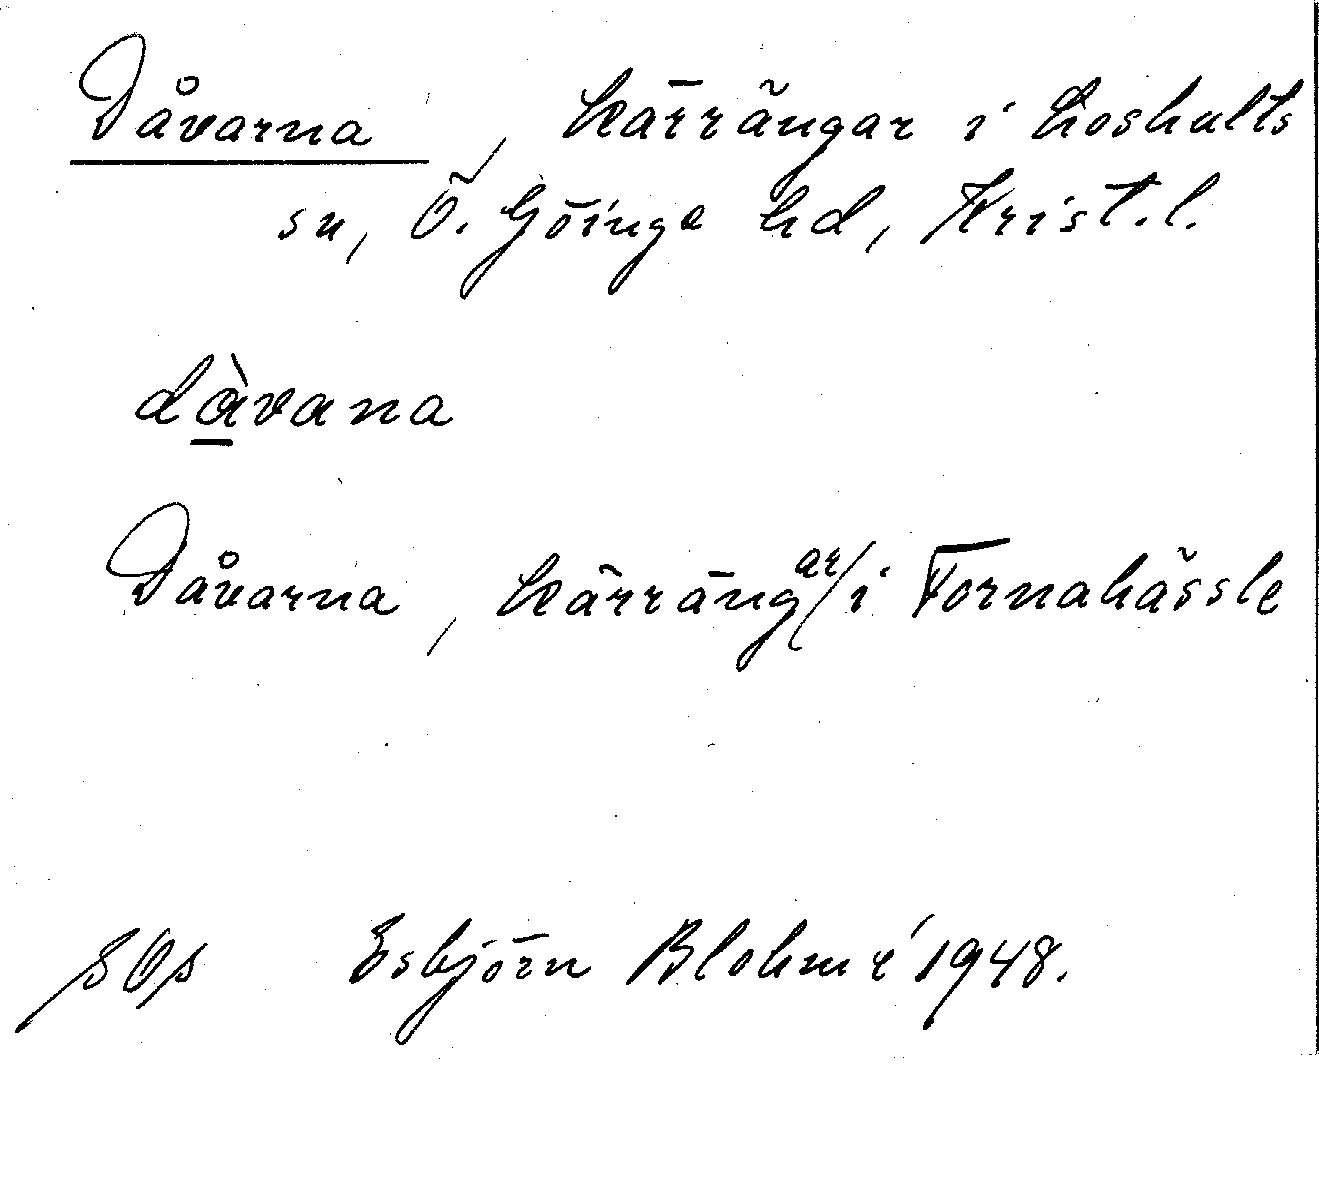 Dåvarna, kärrängar i Loshults
sn, Ö. Göinge hd, Krist. l.
dàvana
Dåvarna, kärrängar/i Tornahässle
Esbjörn Blohmé 1948.